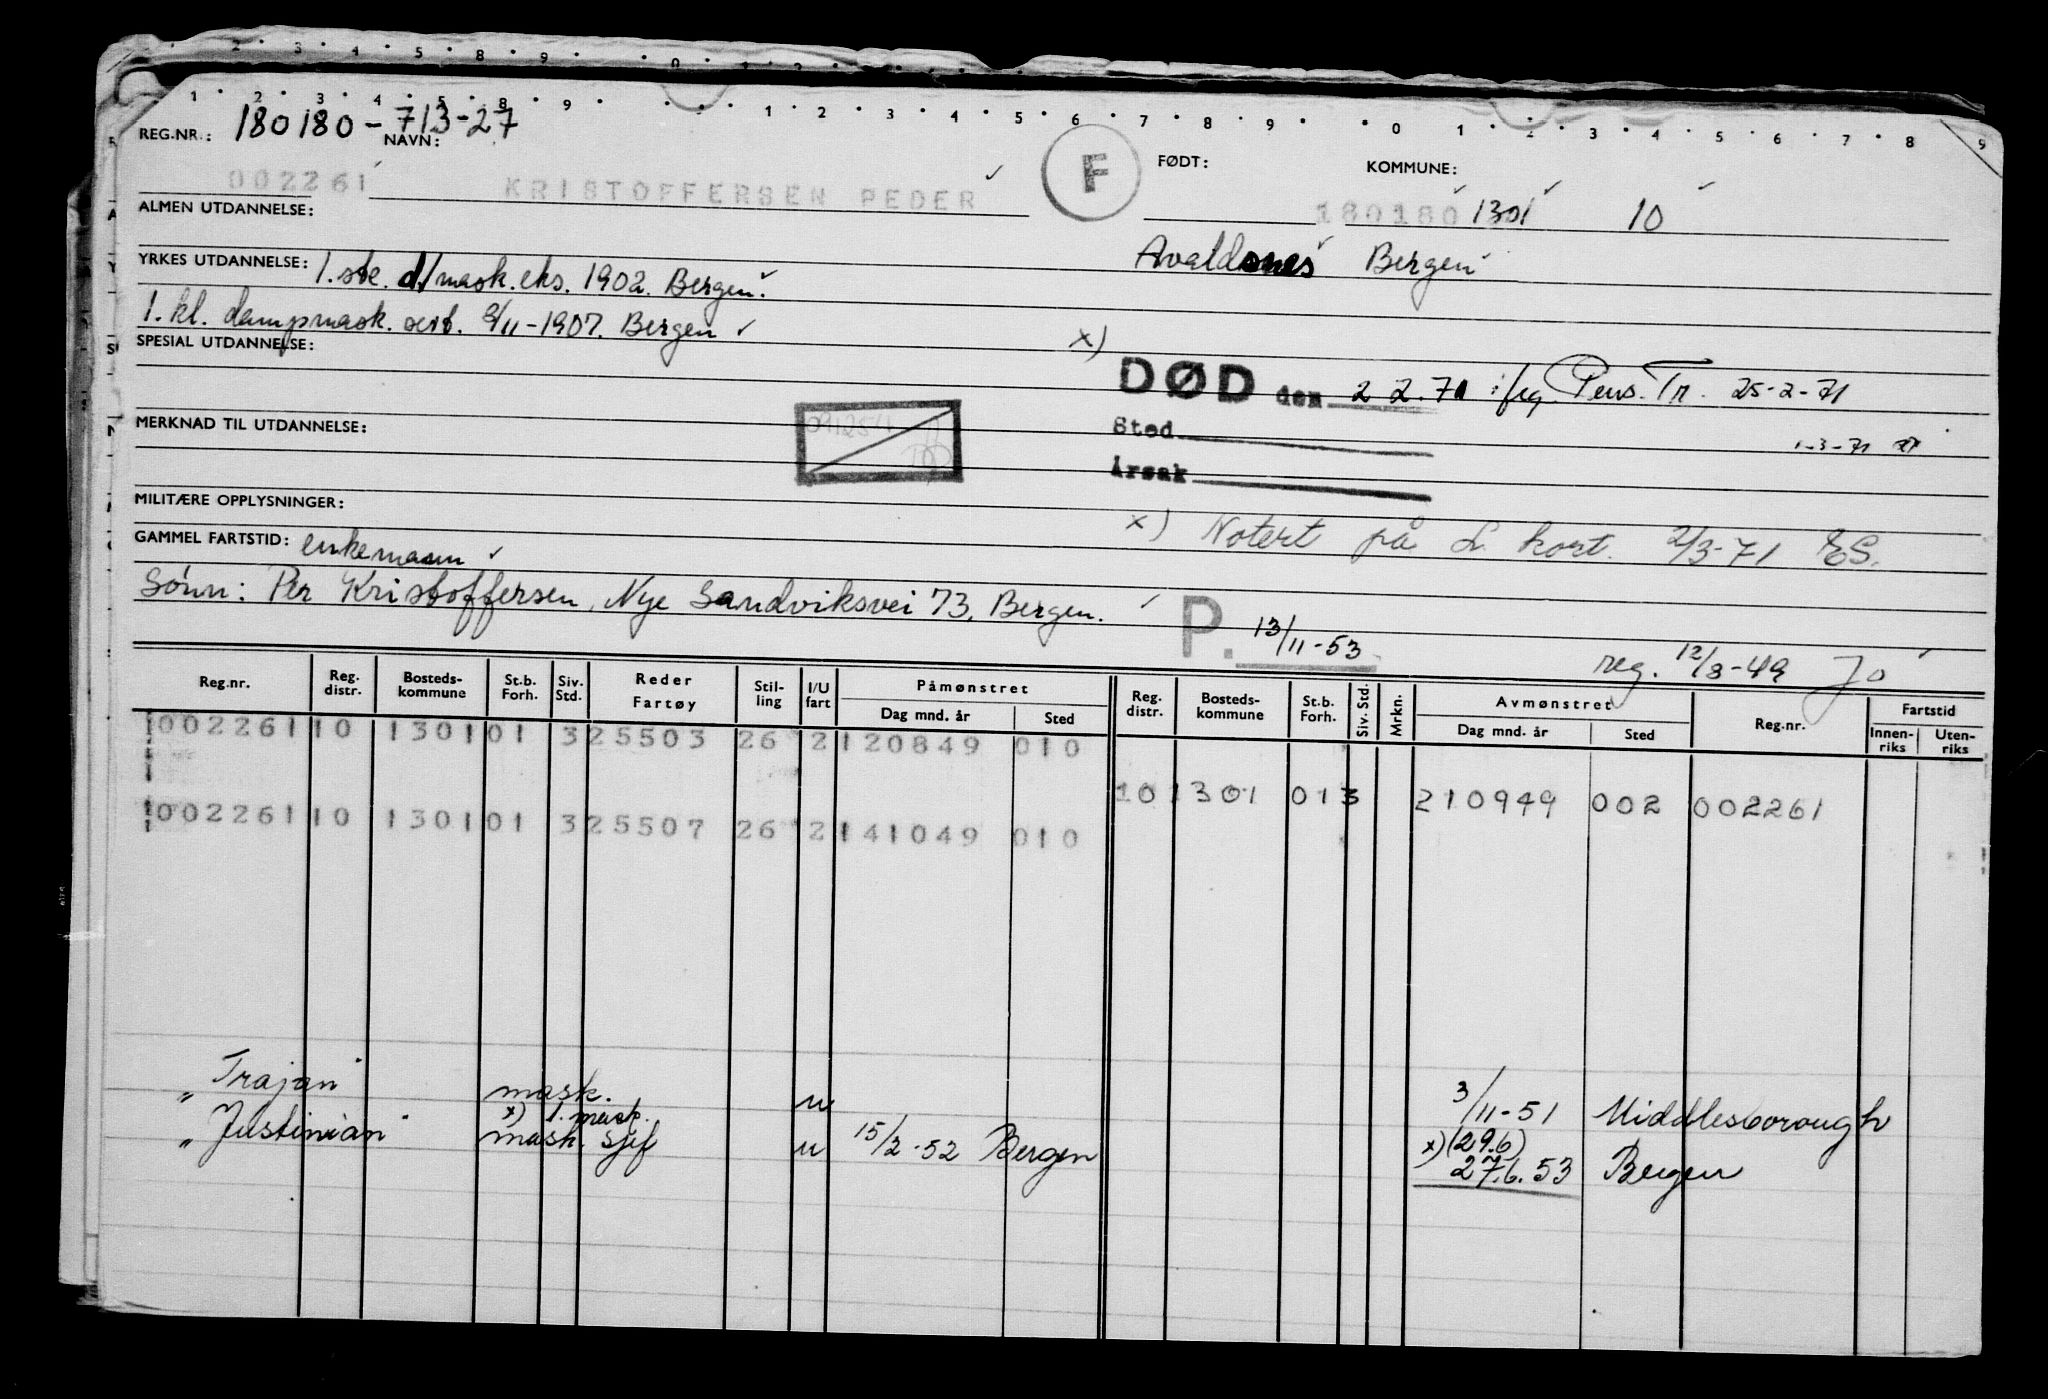 REG.NR.: 180180-713-27
NAVN:
FØDT: KOMMUNE:
002261 KRISTOFFERSEN PEDER F 180180 1301 10
ALMEN UTDANNELSE:
Avaldsnes Bergen
YRKES UTDANNELSE: 1.ste. d/mask.eks. 1902. Bergen.
1. kl. dampmask. sert. 9/11-1907. Bergen
SPESIAL UTDANNELSE:
x)
DØD den 2 2.71 ifeg. Pens. Tr. 25-2-71
Sted
1-3-71
MERKNAD TIL UTDANNELSE:
Årsak
MILITÆRE OPPLYSNINGER:
x) Notert på L. kort. 2/3-71 ES.
GAMMEL FARTSTID: enkemann
Sønn: Per Kristoffersen, Nye Sandviksvei 73, Bergen.
P. 13/11-53
reg. 12/8-49 Jo
Reg.nr. Reg. distr. Bosteds-kommune St.b. Forh. Siv. Std. Reder Fartøy Stil-ling I/U fart Påmønstret Dag mnd. år Sted Reg. distr. Bosteds-kommune St.b. Forh. Siv. Std. Mrkn. Avmønstret Dag mnd. år Sted Reg.nr. Fartstid Innen-riks Uten-riks
002261 10 1301 01 3 25503 26 2 120849 010
10 1301 01 3 210949 002 002261
002261 10 1301 01 3 25507 26 2 141049 010
"Trajan" mask. u 3/11-51 Middlesborough
x) 1. mask. x) (29.6)
"Justinian" mask. sjef u 15/2-52 Bergen 27.6.53 Bergen